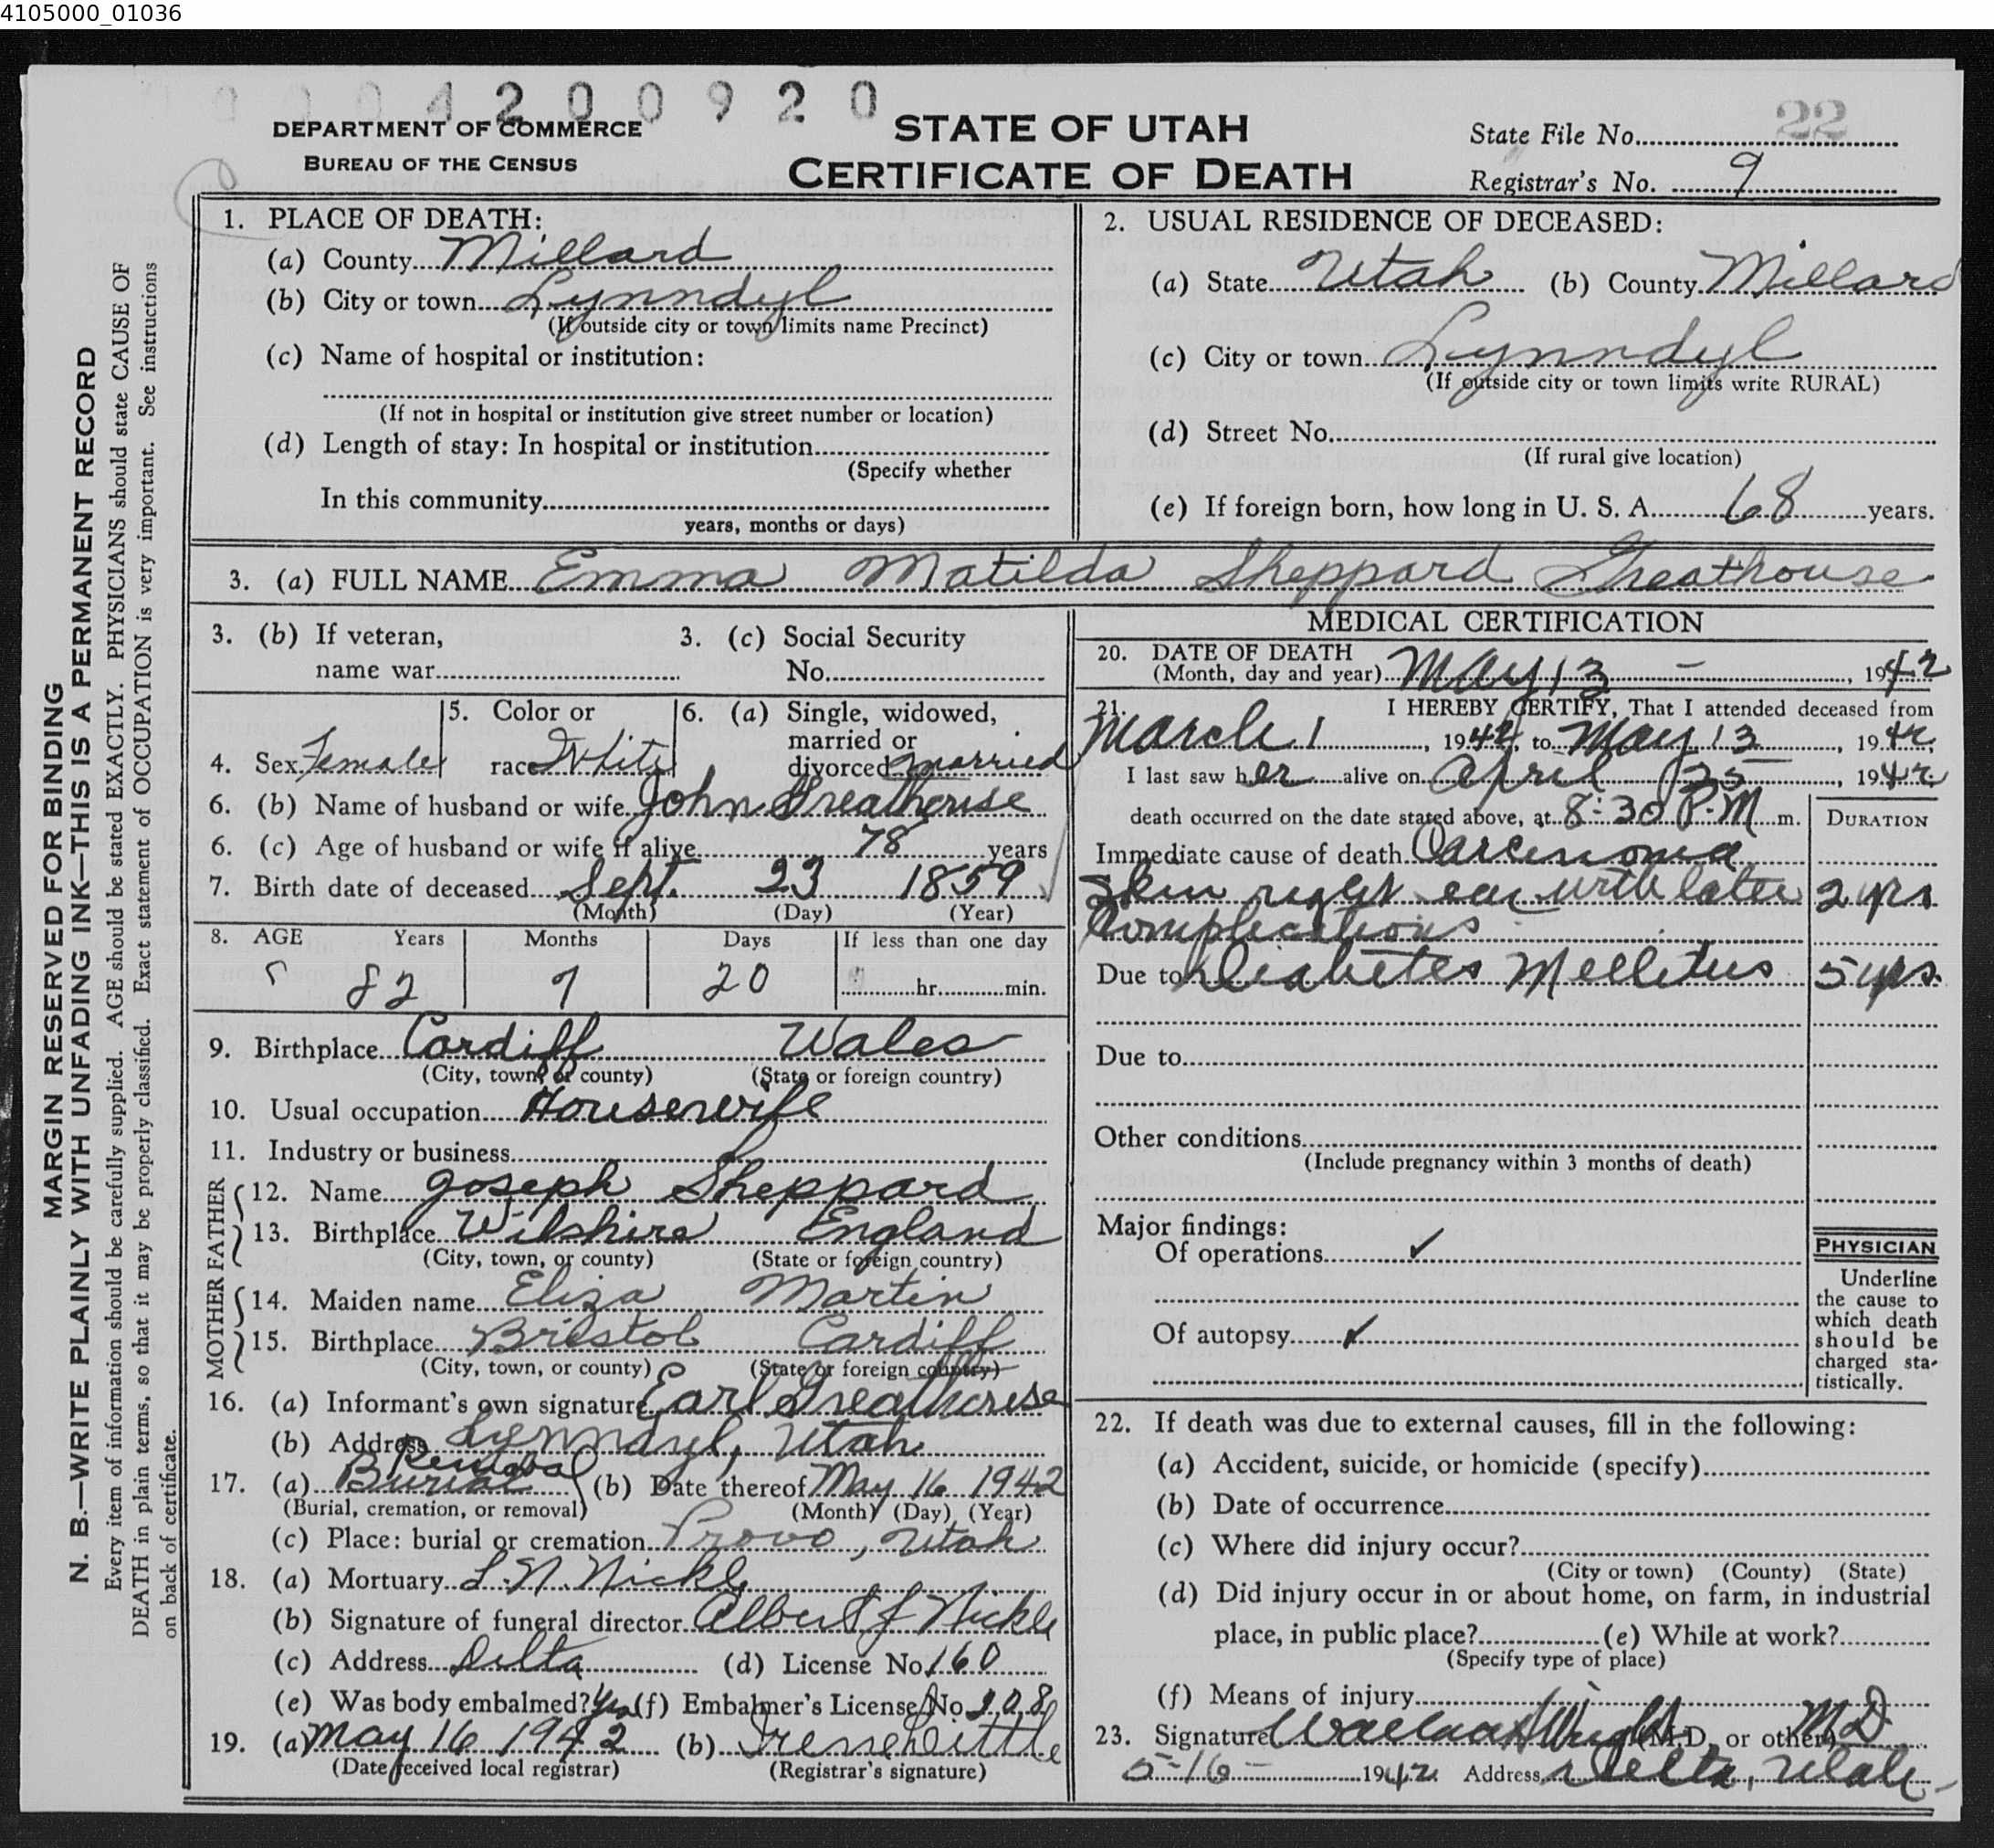 4105000_01036
0 0 0 4 2 0 0 9 2 0
DEPARTMENT OF COMMERCE
BUREAU OF THE CENSUS
STATE OF UTAH
CERTIFICATE OF DEATH
State File No. 22
Registrar's No. 9
MARGIN RESERVED FOR BINDING
N. B.—WRITE PLAINLY WITH UNFADING INK—THIS IS A PERMANENT RECORD
Every item of information should be carefully supplied. AGE should be stated EXACTLY. PHYSICIANS should state CAUSE OF
DEATH in plain terms, so that it may be properly classified. Exact statement of OCCUPATION is very important. See instructions
on back of certificate.
1. PLACE OF DEATH:
(a) County Millard
(b) City or town Lynndyl
(If outside city or town limits name Precinct)
(c) Name of hospital or institution:
(If not in hospital or institution give street number or location)
(d) Length of stay: In hospital or institution
(Specify whether
In this community
years, months or days)
2. USUAL RESIDENCE OF DECEASED:
(a) State Utah (b) County Millard
(c) City or town Lynndyl
(If outside city or town limits write RURAL)
(d) Street No.
(If rural give location)
(e) If foreign born, how long in U. S. A. 68 years.
3. (a) FULL NAME Emma Matilda Sheppard Greathouse
3. (b) If veteran,
name war
3. (c) Social Security
No.
4. Sex Female
5. Color or
race White
6. (a) Single, widowed,
married or
divorced married
6. (b) Name of husband or wife John Greathouse
6. (c) Age of husband or wife if alive 78 years
7. Birth date of deceased Sept. 23 1859
(Month) (Day) (Year)
8. AGE Years Months Days If less than one day
82 7 20 hr. min.
9. Birthplace Cardiff Wales
(City, town, or county) (State or foreign country)
10. Usual occupation Housewife
11. Industry or business
FATHER
12. Name Joseph Sheppard
13. Birthplace Wilshire England
(City, town, or county) (State or foreign country)
MOTHER
14. Maiden name Eliza Martin
15. Birthplace Bristol Cardiff
(City, town, or county) (State or foreign country)
16. (a) Informant's own signature Earl Greathouse
(b) Address Lynndyl, Utah
Removal
17. (a) Burial (b) Date thereof May 16 1942
(Burial, cremation, or removal) (Month) (Day) (Year)
(c) Place: burial or cremation Provo, Utah
18. (a) Mortuary L. N. Nickle
(b) Signature of funeral director Albert J Nickle
(c) Address Delta (d) License No. 160
(e) Was body embalmed? Yes (f) Embalmer's License No. 208
19. (a) May 16 1942 (b)
(Date received local registrar) (Registrar's signature)
MEDICAL CERTIFICATION
20. DATE OF DEATH
(Month, day and year) May 13 – , 1942
21. I HEREBY CERTIFY, That I attended deceased from
March 1 , 1942, to May 13 , 1942,
I last saw her alive on April 25 , 1942
death occurred on the date stated above, at 8:30 P.M m. DURATION
Immediate cause of death Carcinoma
Skin right ear with later 2 yrs
Complications
Due to Diabetes Mellitus 5 yrs.
Due to
Other conditions
(Include pregnancy within 3 months of death)
Major findings:
Of operations ✓
Of autopsy ✓
PHYSICIAN
Underline
the cause to
which death
should be
charged sta-
tistically.
22. If death was due to external causes, fill in the following:
(a) Accident, suicide, or homicide (specify)
(b) Date of occurrence
(c) Where did injury occur?
(City or town) (County) (State)
(d) Did injury occur in or about home, on farm, in industrial
place, in public place? (e) While at work?
(Specify type of place)
(f) Means of injury
23. Signature Wright (M.D. or other) MD
5-16- 1942 Address Delta, Utah